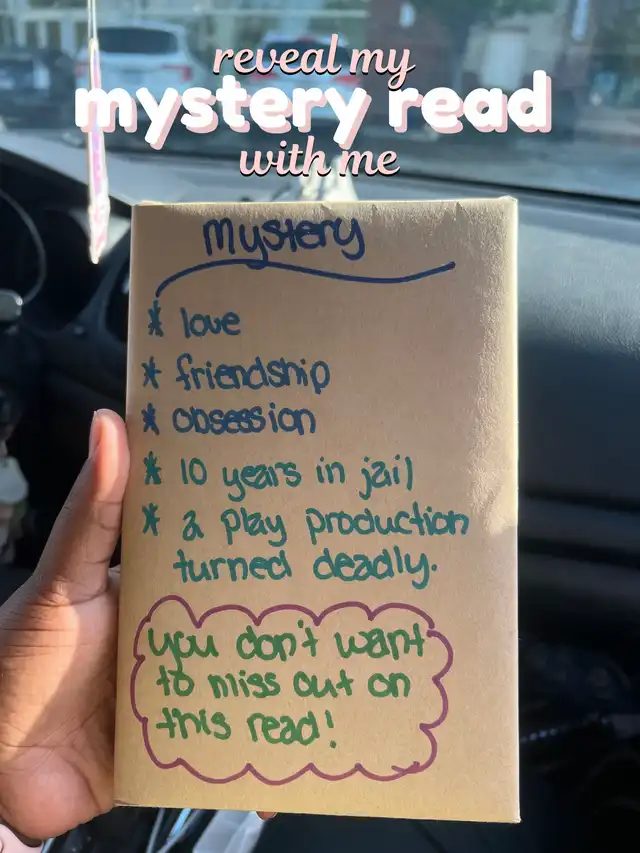 reveal my
mystery read
with me
Mystery
* love
* friendship
* obsession
* 10 years in jail
* a play production
turned deadly.
you don't want
to miss out on
this read!